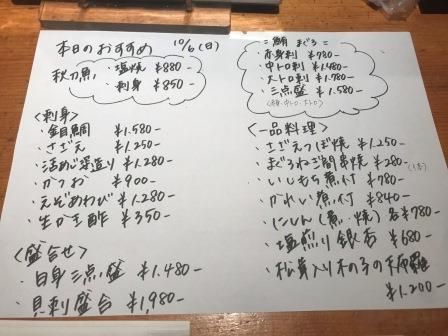 本日のおすすめ 10/6(日)
秋刀魚 ・塩焼 ¥880-
・刺身 ¥850-
<刺身>
・金目鯛 ¥1.580-
・さざえ ¥1.250-
・活あじ姿造り ¥1.280-
・かつお ¥900-
・えぞあわび ¥1.280-
・生かき酢 ¥350-
<盛合せ>
・白身三点盛 ¥1.480-
・貝刺盛合 ¥1,980-
まぐろ =
・赤身刺 ¥780-
・中トロ刺 ¥1.480-
・大トロ刺 ¥1.780-
・三点盛 ¥1.580-
<一品料理>
・さざえつぼ焼 ¥1.250-
・まぐろねぎ間串焼 ¥280-
・いしもち煮付 ¥780-
・かれい煮付 ¥840-
・にしん(煮・焼)各¥780-
・塩煎り銀杏 ¥680-
・松茸入り木の子の天婦羅
¥1.200-